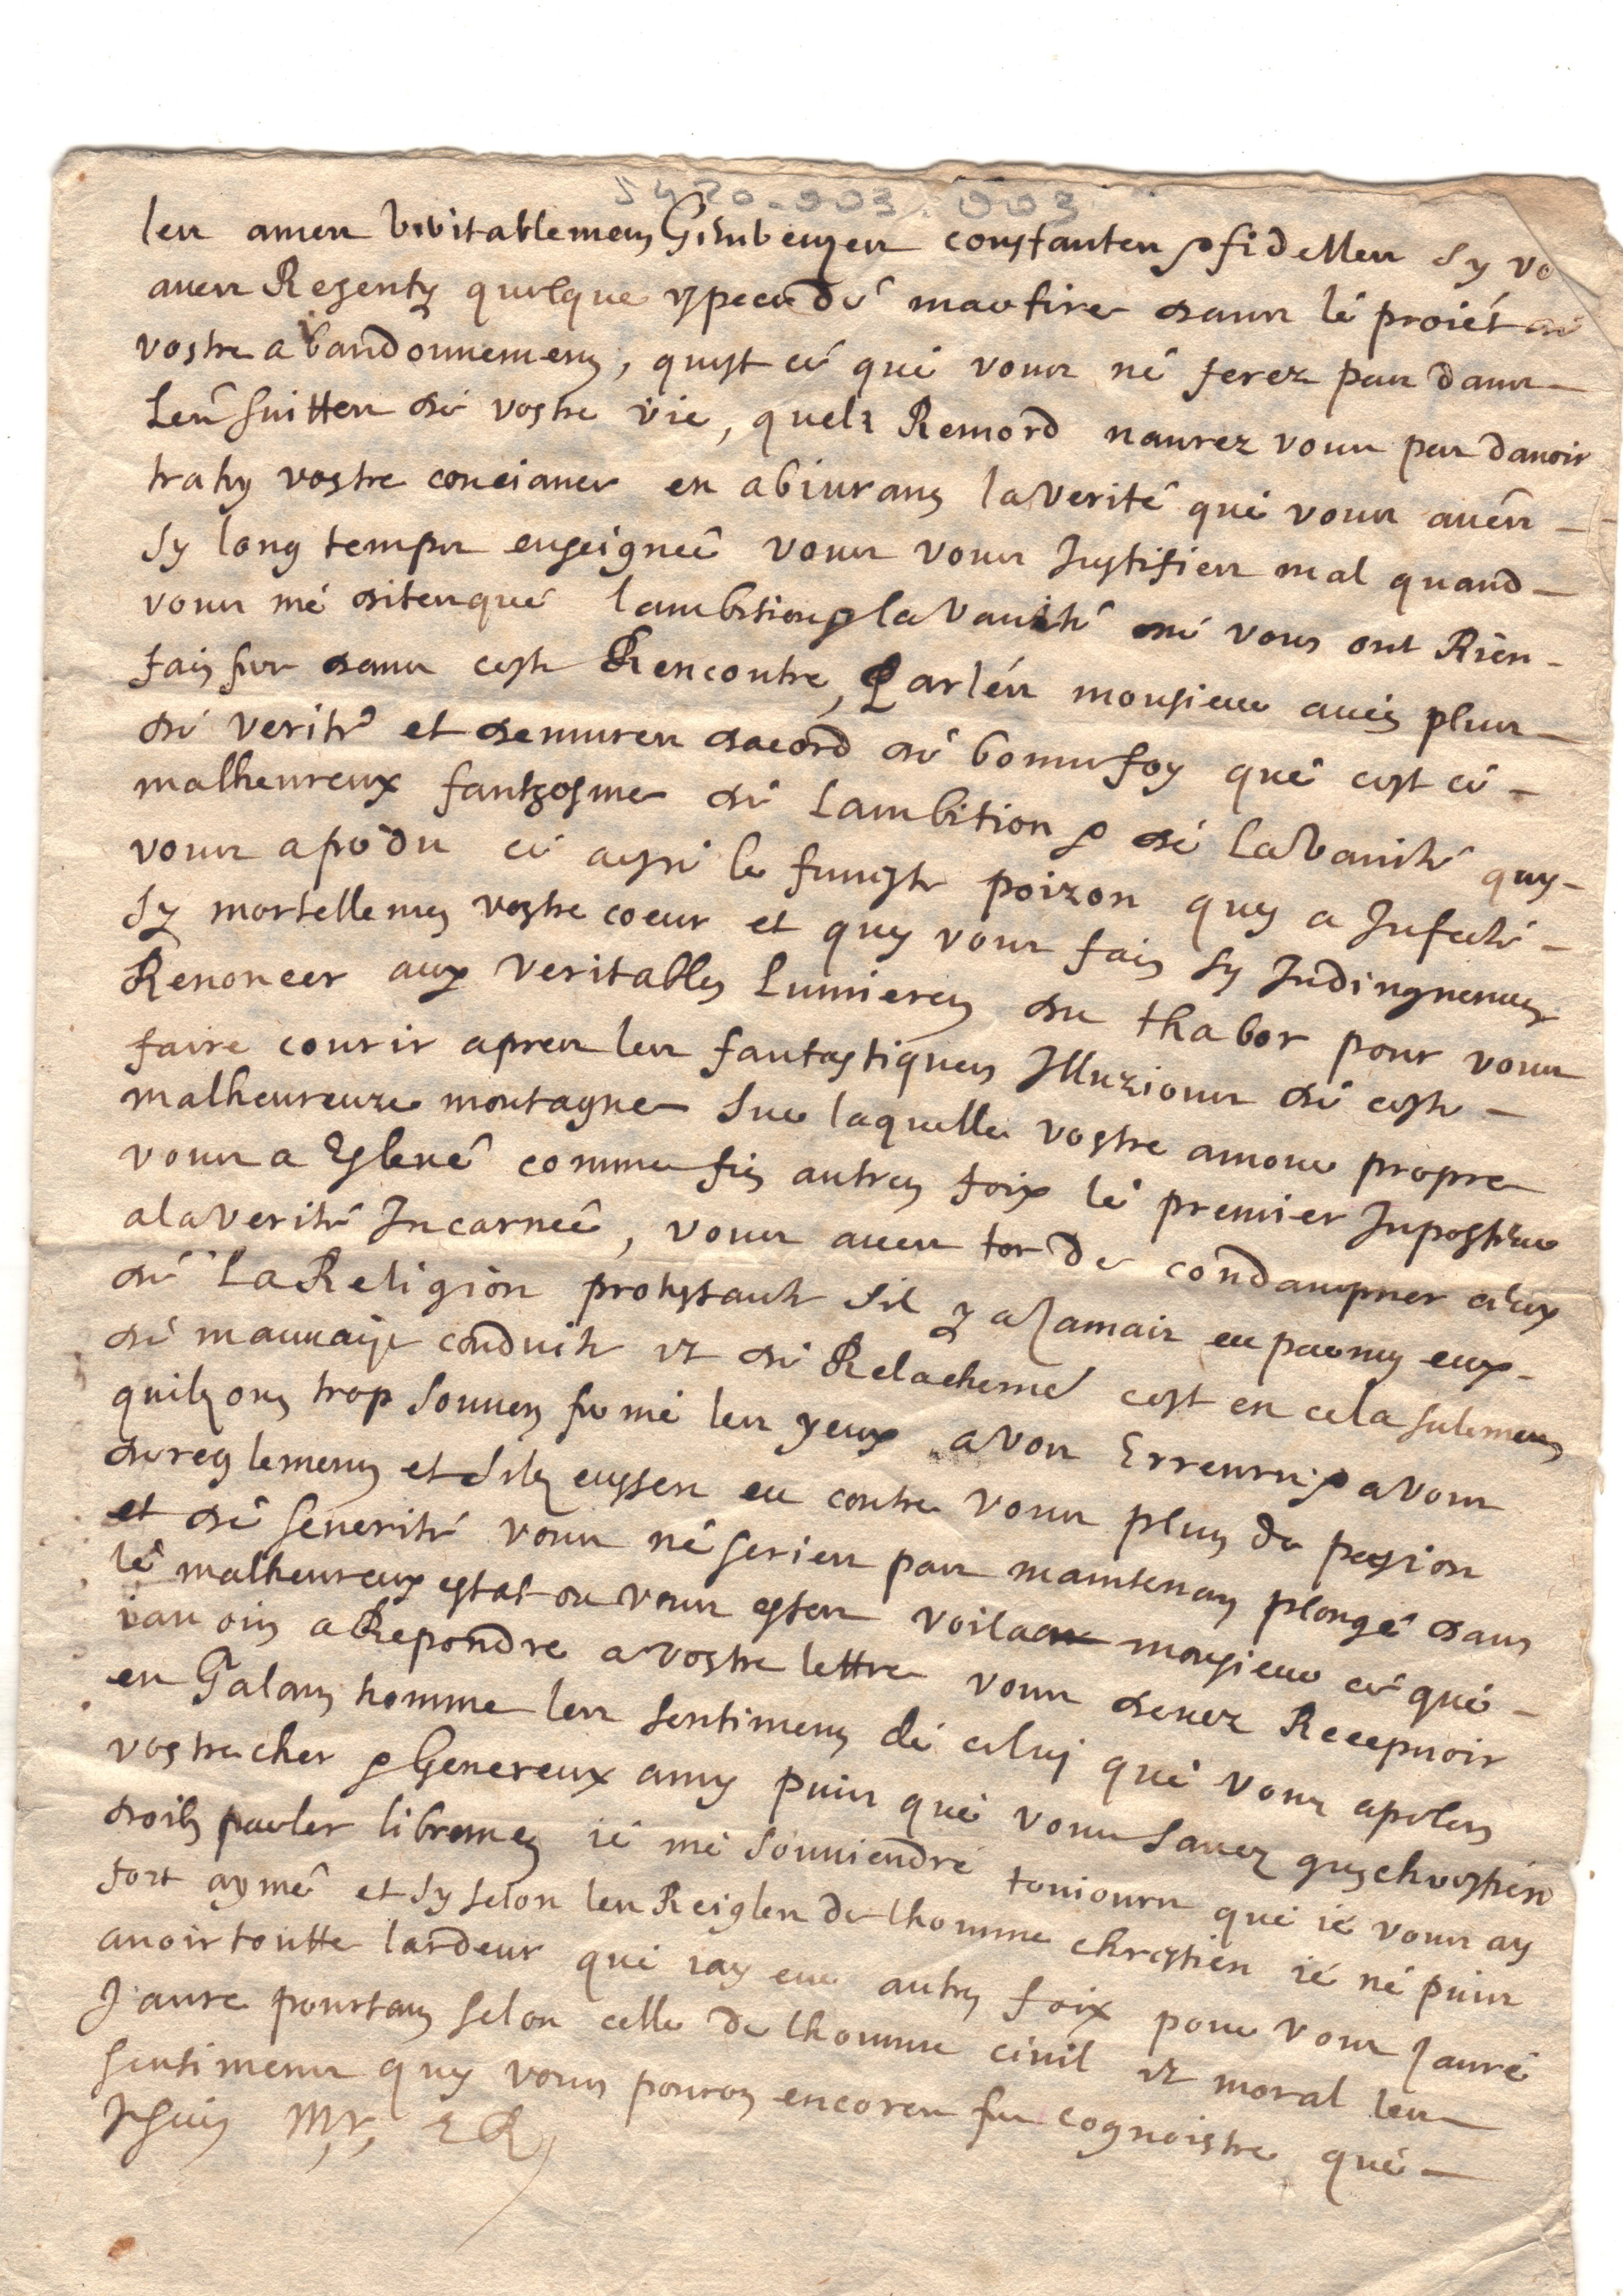 5420.003.003
les ames veritablemens constantes & fidelles sy vo
aues Resenty quelque espece de martire dans lé proiét dé
vostre abandonnemens, quest cé qué vous né ferez pas dans
Les suittes dé vostre vie, quels Remord naurez vous pas dauoir
trahy vostre conciance en abiurans la verité qué vous aués
sy long temps enseigneé vous vous Justifies mal quand
vous mé dites qué lambition & la Vanité né vous ont Rien
fais fer dans ceste Rencontre, Parlés monsieur auéq plus
dé verité et demures dacord dé bonne foy qué cest cé
malheureux fantosme dé Lambition & dé La Vanité quy
vous a perdu cé aysté le funeste poizon quy a Infecté
sy mortellemen vostre coeur et quy vous fais sy Indingnemens
Renoncer aux veritables Lumieres du thabor pour vous
faire courir apres les fantastiques Illuzions dé ceste
malheureuze montagne sur laquelle vostre amour propre
vous a Esleué comme fis autres foix lé premier Inposteur
a la verité Incarneé, vous aues tor de condampner ceux
dé La Religion protestante sil y a Jamais eu parmy eux
dé mauuaise conduite et dé Relachemé cest en cela sulemens
quils ons trop souuen fermé les yeux a vos Erreurs & a vous
dereglemens et sils eussen eu contre vous plus de pasion
et dé seuerité vous né series pas maintenan plongé dans
lé malheureux estat ou vous estes voila monsieur cé qué
iauois a Repondre a vostre lettre vous deuez Recepuoir
en Galans homme les sentimens dé celuy qué vous apeles
vostre cher & Genereux amy puis qué vous sauez quy chrestien
doits parler libremen ié mé souuiendré touiours qué ié vous ay
fort aymé et sy selon les Reigles de lhomme chrestien ié né puis
auoir toutte lardeur qué iay eue autres foix pour vous Jauré
Jaure pourtans selon celle de lhomme ciuil et moral les
sentimens quy vous pouron encores fer cognoistre qué
Jesuis Mr,